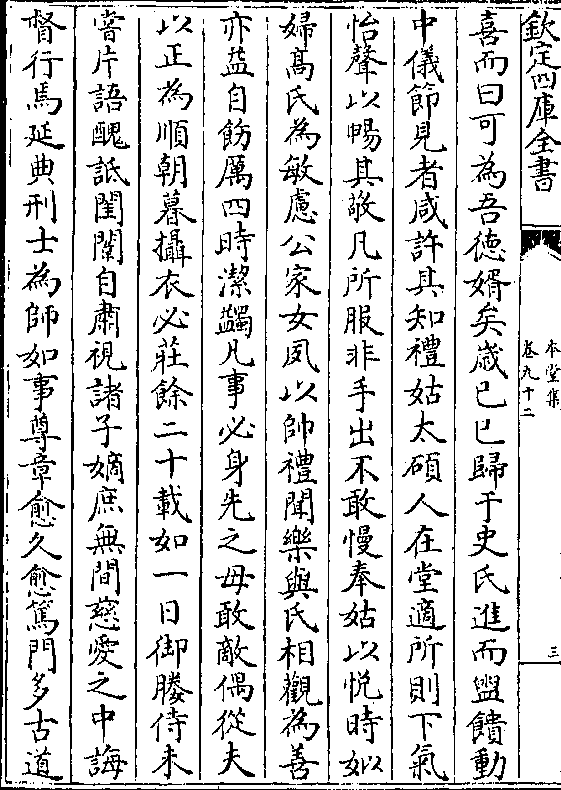 欽定四庫全書
本堂集
卷九十二
三
喜而曰可為吾徳婿矣歳已已歸于史氏進而盥饋動
中儀節見者咸許其知禮姑太碩人在堂適所則下氣
怡聲以暢其敬凡所服非手出不敢慢奉姑以悦時姒
婦髙氏為敏慮公家女夙以帥禮聞樂與氏相觀為善
亦益自飭厲四時潔蠲凡事必身先之毋敢敵偶從夫
以正為順朝暮攝衣必莊餘二十載如一日御媵侍未
嘗片語醜詆閨闈自肅視諸子嫡庶無間慈愛之中誨
督行焉延典刑士為師如事尊章愈久愈篤門多古道